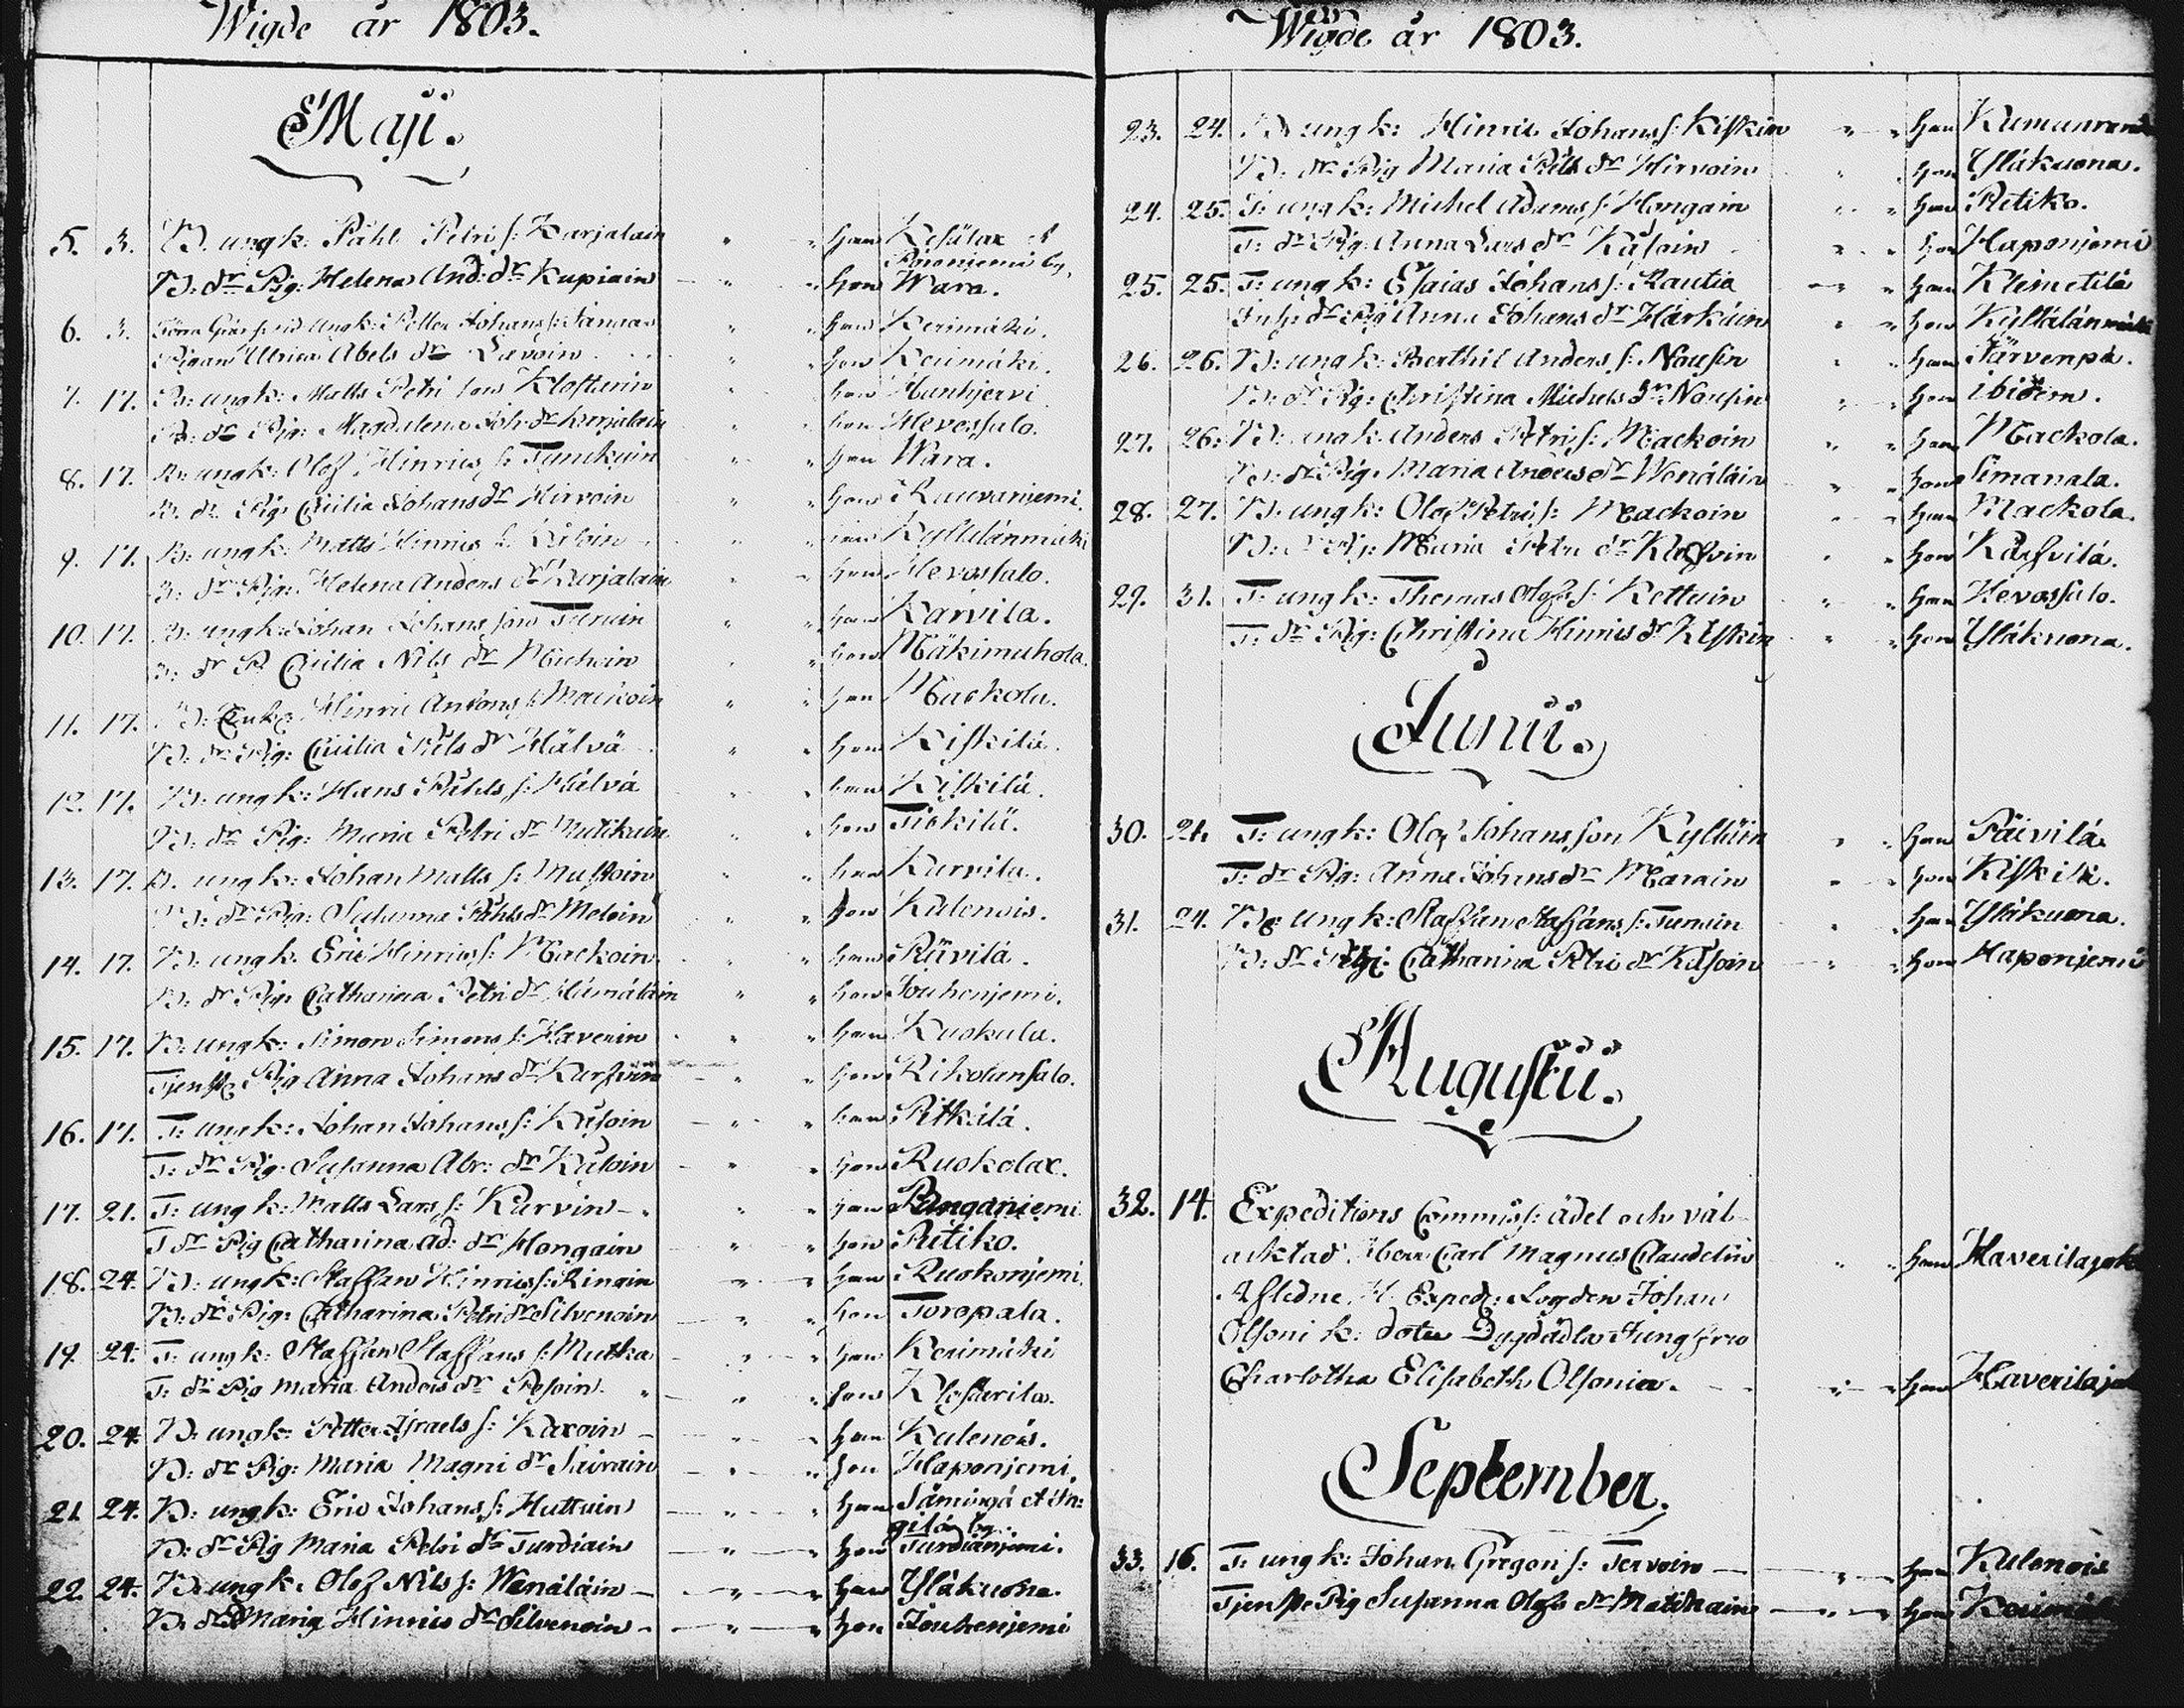 Wigde år 1803.
Maji.
5. 3. B. ungk: Påhl Petri s: Karjalain " " han Kesälax
Poronjemi by.
B: dr Pig: Helena And: dr Kupiain " " hon Wara.
6. 3. ungk: Petter Johans s: " " han Kerimäki.
Pigan Ulrica Abels dr Savoin " " hon Kerimäki.
7. 17. B: ungk: Matts Petri son Klosturin " han Hanhjervi
B: dr Pig: Magdalena Joh: dr Karjalain " " hon Hevossalo.
8. 17. B: ungk: Olof Hinrics s: Tynckyin " " han Wara.
B. dr Pig: Cicilia Johans dr Hirvoin " " hon Rauvanjemi.
9. 17. B: ungk: Matts Hinrics s: " " han Kyllälänmäki
B: dr Pig: Helena Anders dr Karjalain " " hon Hevossalo.
10. 17. B: ungk: Johan Johans son " " han Karvila.
B: dr P. Cicilia Nils dr " " hon Mäkimuhola.
11. 17. B: Enkl: Hinric Antons s: Mackoin " " han Mackola.
B: dr Pig: Cicilia Påls dr Hälvä " " hon Kiskilä.
12. 17. B: ungk: Hans Påhls s: Hälvä " " han Kiskilä.
B: dr Pig: Maria Petri dr Matikain " " hon
13. 17. B. ungk: Johan Matts s: Mustoin " " han Karvila.
B: dr Pig: Susanna Påhls dr Meloin " " hon Kulenois.
14. 17. B: ungk. Eric Hinrics s: Mackoin " " han
B: dr Pig: Catharina Petri dr Hämäläin " " hon Jouhenjemi.
15. 17. B: ungk: Simon Simons s: Haverin " " han Kuokala.
Tjenste Pig Anna Johans dr " " hon Rikolansalo.
16. 17. T: ungk: Johan Johans s: Käsoin " " han Pitkälä.
T: dr Pig: Susanna Abr: dr Käsoin " " hon Ruokolax.
17. 21. T: ungk: Matts Lars s: Karvin " " han Punganjemi
T dr Pig Catharina Ad: dr Hongain " " hon Petiko.
18. 24. B: ungk: Staffan Hinrics s: Ringin " " han Ruokonjemi.
B: dr Pig: Catharina Petri dr Silvenoin " " hon Toropala.
19. 24. T: ungk: Staffan Staffans s: Mutka " " han Kerimäki
T: dr Pig Maria Anders dr Pesoin " " hon Klostarila.
20. 24. B: ungk: Petter Israels s: Kaxoin " " han Kulenois.
B: dr Pig: Maria Magni dr Sairain " " hon Haponjemi.
21. 24. B: ungk: Eric Johans s: Huttuin " " han Sämingä
by.
B: dr Pig Maria Petri dr Turdiain " " hon Turdianjemi.
22. 24. B: ungk: Olof Nils s: Wänäläin " " han Yläkuona.
B: dr Maria Hinrics dr Silvenoin " " hon Jouhenjemi
Wigde år 1803.
23. 24. B ungk: Hinric Johans s: Kiskin " " han
B: dr Pig Maria Påls dr Hirvoin " " hon Yläkuona.
24. 25. T: ungk: Michel Adams s: Hongain " " han Petiko.
T: dr Pig: Anna Lars dr Käsoin " " hon Haponjemi
25. 25. T: ungk: Esaias Johans s: Rautia " " han Klemetilä
Inh: dr Pig Anna Johans dr Härkein " " hon Kyllälänmäki
26. 26. B: ungk: Berthil Anders s: Nousin " " han Järvenpä.
B: dr Pig: Christina Michels dr Nousin " " hon ibidem.
27. 26: B: ungk: Anders Petri s: Mackoin " " han Mackola.
B: dr Pig: Maria Anders dr Wenäläin " " hon Simanala.
28. 27. B: ungk: Olof Petri s: Mackoin " " han Mackola.
B: dr Pig: Maria Petri dr " " hon
29. 31. T: ungk: Thomas Olofs s: Kettuin " " han Hevossalo.
T: dr Pig: Christina Hinrics dr Kiskin " " hon Yläkuona.
Junii.
30. 24. T: ungk: Olof Johans son " " han Päivilä
T: dr Pig: Anna Johans dr Marain " " hon Kiskilä.
31. 24. B: ungk: Staffan Staffans s: Turuin " " han Yläkuona.
B: dr Pig: Catharina Petri dr Käsoin " " hon Haponjemi
Augustii.
32. 14. Expeditions Commiss: ädel och väl-
acktad Herr Carl Magnus Claudelin " " han
Afledne H. Exped: Fogden Johan
Olsoni k: doter Dygdädla Jungfru
Charlotha Elisabeth Olsonia. " " hon
September.
33. 16. T: ungk: Johan Gregori s: Tervoin " " han Kulenois
Tjenste Pig Susanna Olofs dr Matikain " " hon